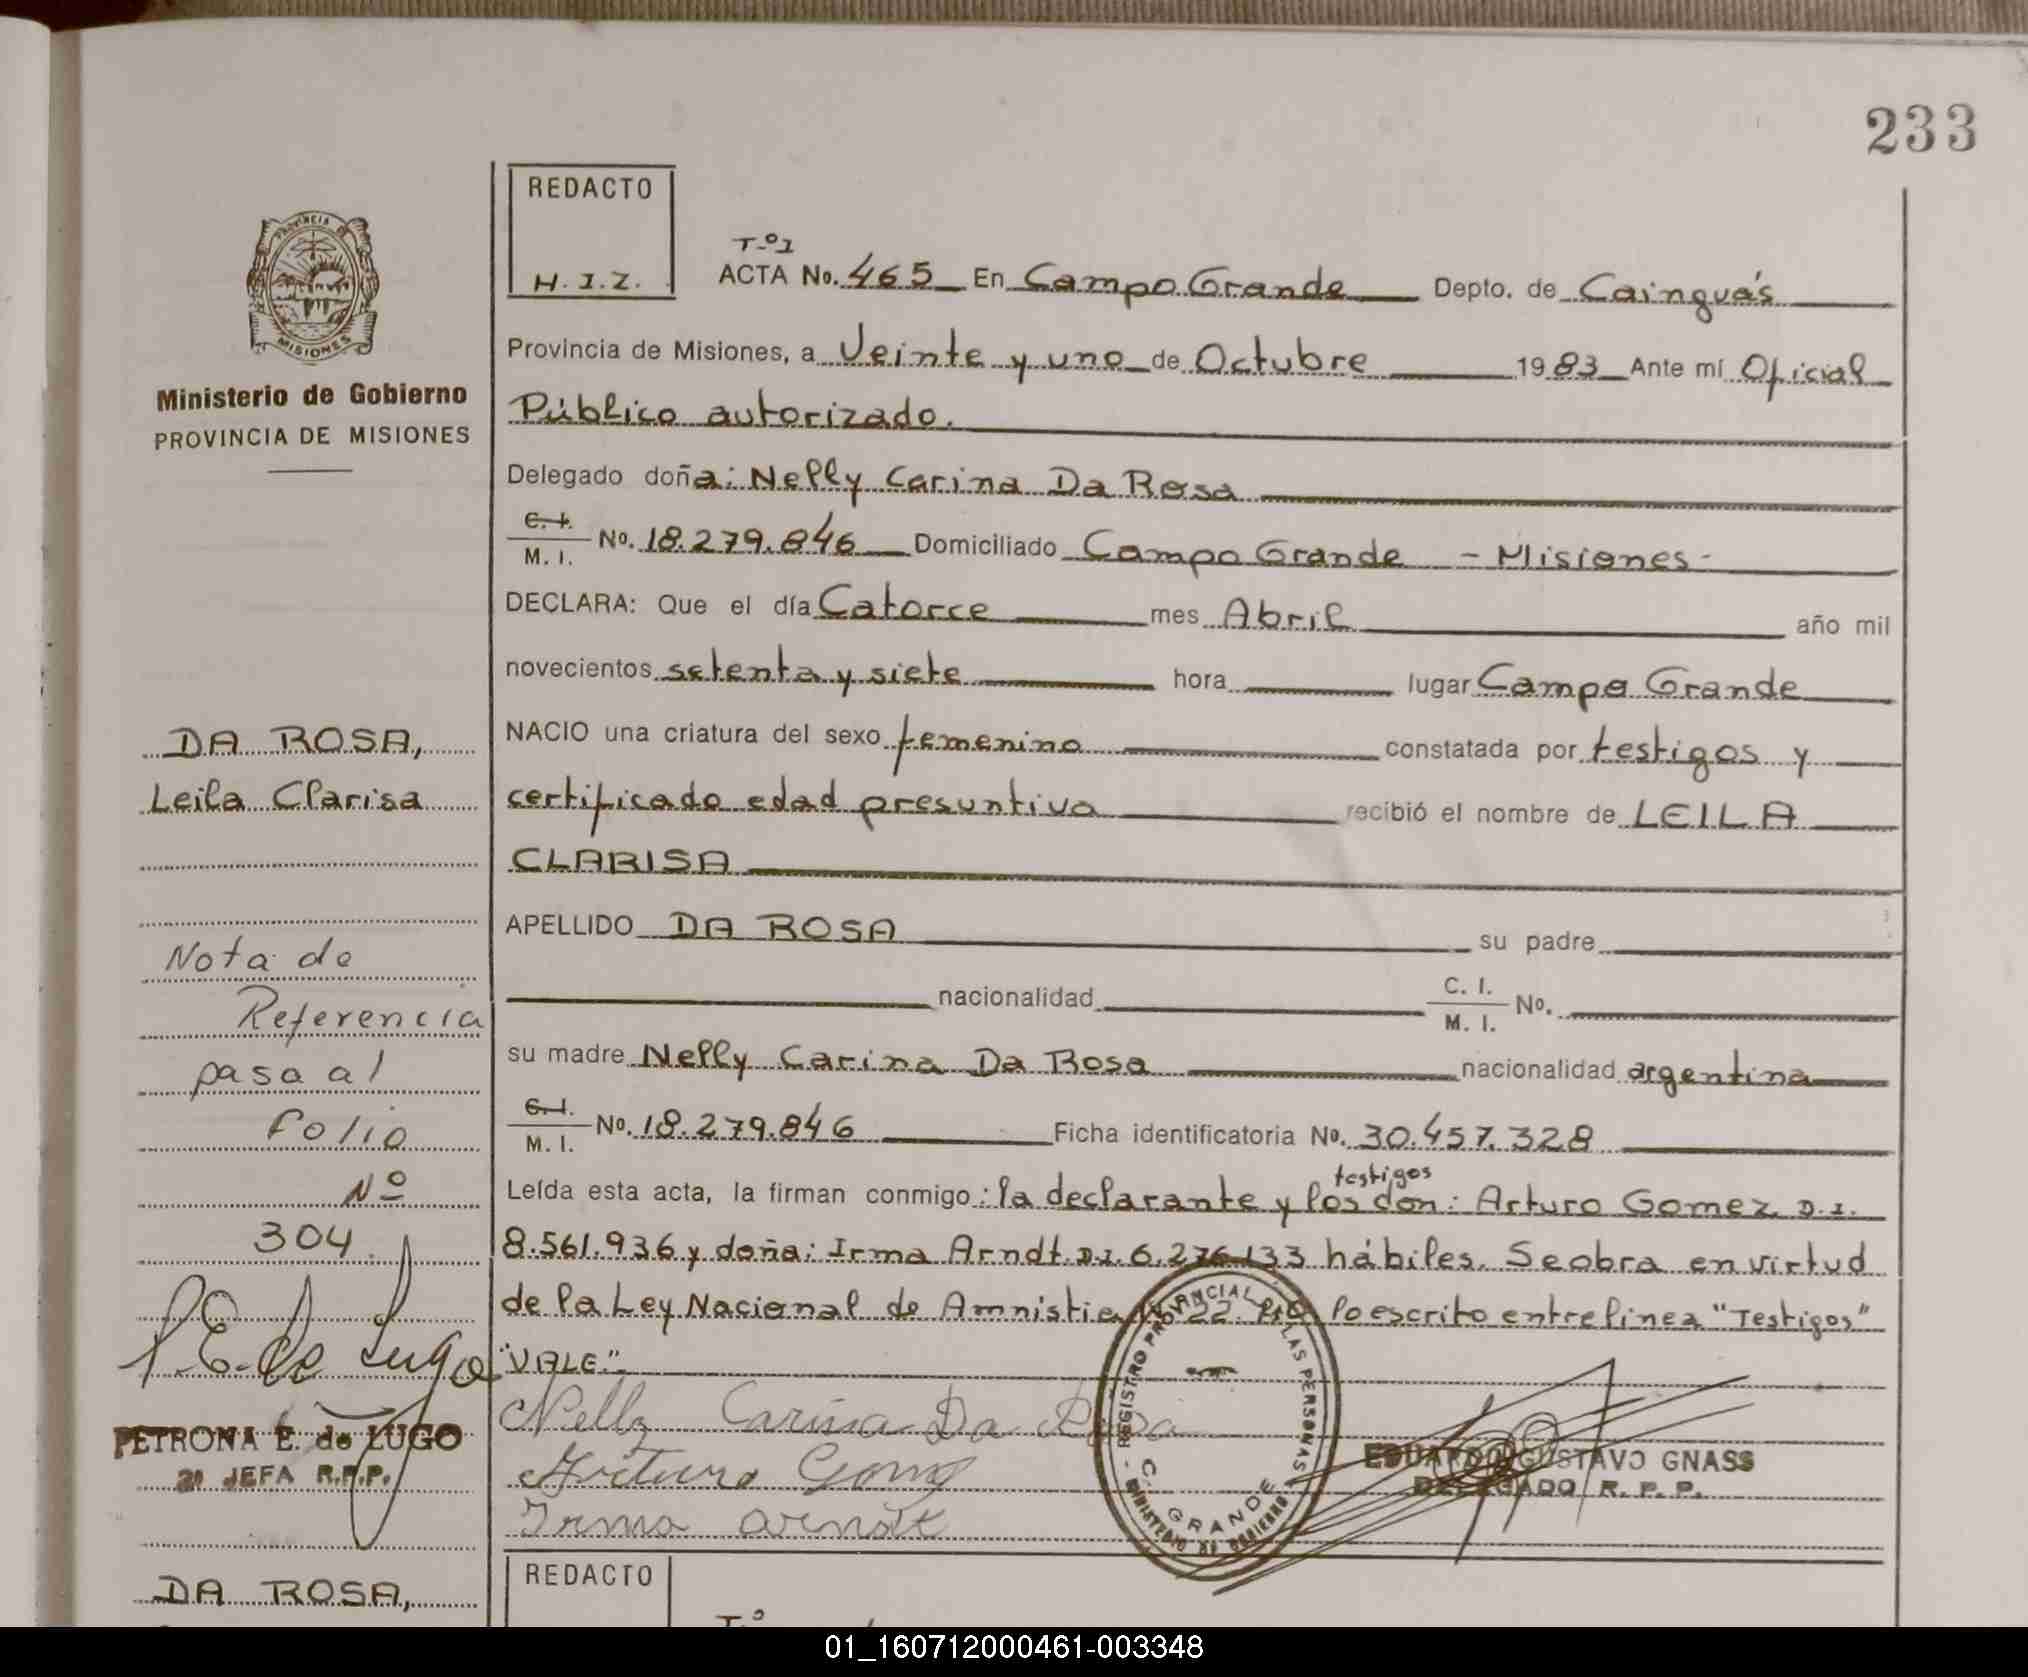 233
REDACTO
H.I.Z.
PROVINCIA DE
MISIONES
Ministerio de Gobierno
PROVINCIA DE MISIONES
T-º1
ACTA No. 465 En Campo Grande Depto. de Cainguás
Provincia de Misiones, a Veinte y uno de Octubre 1983 Ante mí Oficial
Público autorizado.
Delegado doña: Nelly Carina Da Rosa
C. I. / M. I. No. 18.279.846 Domiciliado Campo Grande - Misiones -
DECLARA: Que el día Catorce mes Abril año mil
novecientos setenta y siete hora lugar Campo Grande
NACIO una criatura del sexo femenino constatada por testigos y
certificado edad presuntiva recibió el nombre de LEILA
CLARISA
APELLIDO DA ROSA su padre
nacionalidad C. I. / M. I. No.
su madre Nelly Carina Da Rosa nacionalidad argentina
C. I. / M. I. No. 18.279.846 Ficha identificatoria No. 30.457.328
testigos
Leída esta acta, la firman conmigo: la declarante y los don: Arturo Gomez D.I.
8.561.936 y doña: Irma Arndt D.I. 6.276.133 hábiles. Se obra en virtud
de la Ley Nacional de Amnistia Nº 22. lo escrito entrelinea "Testigos"
"VALE."
Nelly Carina Da Rosa
Arturo Gomez
Irma Arndt
REGISTRO PROVINCIAL DE LAS PERSONAS
C. GRANDE
MINISTERIO DE GOBIERNO
EDUARDO GUSTAVO GNASS
DELEGADO R. P. P.
DA ROSA,
Leila Clarisa
Nota de
Referencia
pasa al
Folio
Nº
304.
P.E. de Lugo
PETRONA E. de LUGO
2ª JEFA R.P.P.
DA ROSA,
REDACTO
01_160712000461-003348